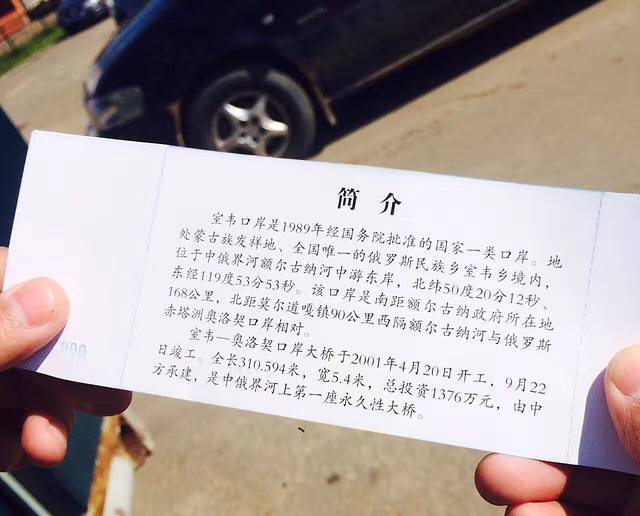 简 介
室韦口岸是1989年经国务院批准的国家一类口岸。地
处蒙古族发祥地、全国唯一的俄罗斯民族乡室韦乡境内,
位于中俄界河额尔古纳河中游东岸,北纬50度20分12秒、
东经119度53分53秒。该口岸是南距额尔古纳政府所在地
168公里,北距莫尔道嘎镇90公里西隔额尔古纳河与俄罗斯
赤塔洲奥洛契口岸相对。
室韦—奥洛契口岸大桥于2001年4月20日开工,9月22
日竣工。全长310.594米,宽5.4米,总投资1376万元,由中
方承建,是中俄界河上第一座永久性大桥。